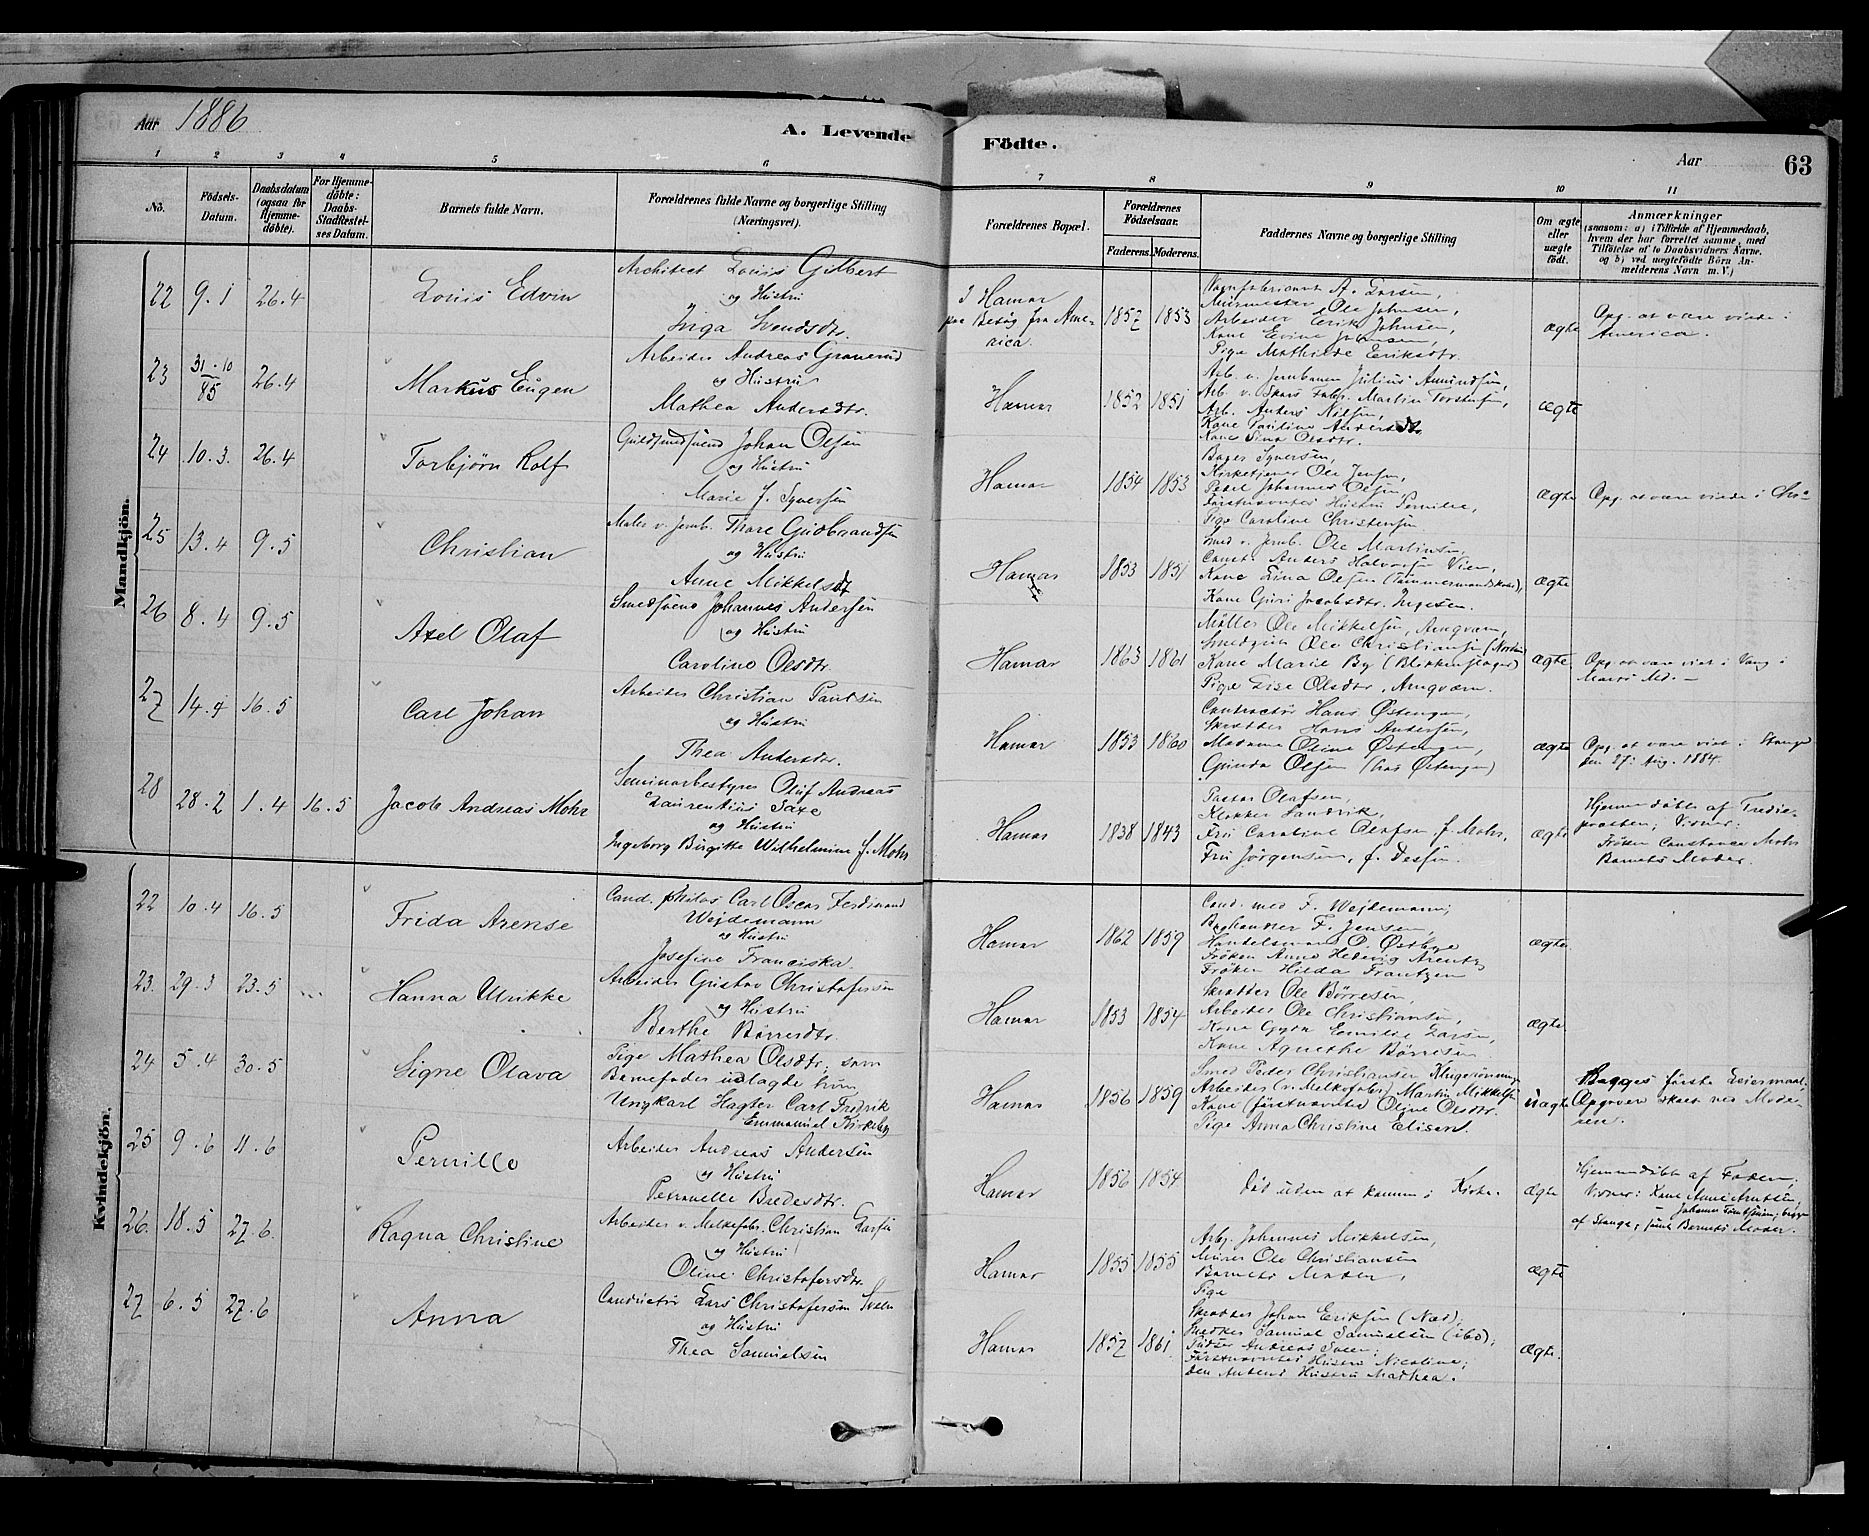 Aar 1886
A. Levende
Födte.
Aar
63
1 2 3 4 5 6 7 8 9 10 11
No.
Födsels-
Datum.
Daabsdatum
(ogsaa for
Hjemme-
døbte).
For Hjemme-
døbte:
Daabs-
Stadfæstel-
ses Datum.
Barnets fulde Navn.
Forældrenes fulde Navne og borgerlige Stilling
(Næringsvei).
Forældrenes Bopæl.
Forældrenes
Födselsaar.
Faderens. Moderens.
Faddernes Navne og borgerlige Stilling
Om ægte
eller
uægte
født.
Anmærkninger
(saasom: a) i Tilfælde af Hjemmedaab,
hvem der har forrettet samme, med
Tilföielse af to Daabsvidners Navne.
og b) ved uægtefödte Börn An-
melderens Navn m. V.)
Mandkjön.
22 9.1 26.4 Louis Edvin
Architect Louis Gilbert
og Hustru
Inga Svendsdtr.
I Hamar
paa Besøg fra Ame-
rica.
1857 1853
Vognfabrikant A. Larsen,
Muurmester Ole Johnsen,
Arbeider Erik Johnsen,
Kone Evine Johansen,
Pige Mathilde Eriksdtr.
ægte
Opg. at være viede i
America.
23 31.10 85 26.4 Markus Eugen
Arbeider Andreas Granerud
og Hustru
Mathea Andersdtr.
Hamar 1852 1851
Arb. v. Jernbanen Julius Amundsen,
Arb. v. Skars Fabr. Martin Torstensen,
Arb. Anders Nilsen,
Kone Pauline Andersdtr,
Kone Sina Olsdtr.
ægte
24 10.3. 26.4 Torbjörn Rolf
Guldsmedsvend Johan Olsen
og Hustru
Marie f. Syversen
Hamar 1854 1853
Bager Syversen,
Kirketjener Ole Jensen,
Johannes Olsen,
Förstnævntes Hustru Pernille,
Pige Caroline Christensen
ægte
Opg. at være viede i Chra
25 13.4 9.5 Christian
Maler v. Jernb. Thore Gudbrandsen
og Hustru
Anne Mikkelsdt
Hamar 1853 1851
Smed v. Jernb. Ole Martinsen,
Anders Halvorsen Vien,
Kone Lina Olsen (Tømmermandskone),
Kone Guri Jacobsdtr. Ingesen.
ægte
26 8.4 9.5 Axel Olaf
Smedsvend Johannes Andersen
og Hustru
Caroline Olsdtr.
Hamar 1863 1861
Möller Ole Mikkelsen, Arnqværn,
Smedsvend Ole Christiansen
Kone Marie By (Blikkenslager)
Pige Lise Olsdtr. Arnqværn.
ægte
Opg. at være viet i Vang i
Marts Md. —
27 14.4 16.5 Carl Johan
Arbeider Christian Paulsen
og Hustru
Thea Andersdtr.
Hamar 1853 1860
Contractör Hans Østengen,
Skrædder Hans Andersen,
Madame Oline Østengen,
Gunda Olsen (hos Østengen)
ægte
Opg. at være viet i Stange
den 27. Aug. 1884.
28 28.2 1.4 16.5 Jacob Andreas Mohr
Seminarbestyrer Oluf Andreas
Laurentius Saxe
og Hustru
Ingeborg Birgitte Wilhelmine f. Mohr
Hamar 1838 1843
Pastor Olafsen,
Klokker Sandvik,
Fru Caroline Olafsen f. Mohr,
Fru Jörgensen,
ægte
Hjemmedöbt af Tredie-
præsten; Vidner:
Fröken Constance Mohr
Barnets Moder.
Kvindekjön.
22 10.4 16.5 Frida Arense
Cand. philos Carl Oscar Ferdinand
Wejdemann
og Hustru
Josefine Franciska.
Hamar 1862 1859
Cand. med F. Wejdemann,
Boghandler F. Jensen,
Handelsmand O. Østbye
Fröken Anne Hedevig Arentz
Fröken Hilda Frantzen
ægte
23. 29.3 23.5 ... Hanna Ulrikke
Arbeider Gustav Christofersen
og Hustru
Berthe Börresdtr.
Hamar 1853 1854
Skrædder Ole Börresen,
Arbeider Ole Christiansen,
Kone Emilie Larsen,
Kone Agnethe Börresen
ægte
24 5.4 30.5 Signe Olava
Pige Mathea Olsdtr, som
Barnefader udlagde hun
Ungkarl Hagter Carl Fredrik
Emmanuel Kirkeby
Hamar 1856 1859
Smed Peder Christiansen
Arbeider (v. Melkefabr.) Martin Mikkelsen
Kone (förstnævntes) Oline Olsdtr.
Pige Anna Christine Elisen.
Uægte
Begges förste Leiermaal.
Opgaver skeet ved Mode-
ren.
25 9.6 11.6 Pernille
Arbeider Andreas Andersen
og Hustru
Petronelle Bredesdtr.
Hamar 1856 1854
Död uden at komme i Kirke.
ægte
Hjemmedöbt af Faderen;
Vidner: Kone Anne Arntsen,
Johannes begge
af Stange, samt Barnets Moder.
26. 18.5 27.6. Ragna Christine
Arbeider v. Melkefabr. Christian Larsen
og Hustru
Oline Christofersdtr.
Hamar 1855 1855
Arb. Johannes Mikkelsen,
Murer Ole Christiansen
Barnets Moder,
Pige
ægte
27 6.5 27.6 Anna
Conductör Lars Christofersen Sveen
og Hustru
Thea Samuelsen
Hamar 1857 1861
Skrædder Johan Eriksen (Næs),
Snedker Samuel Samuelsen (ibd);
Andreas Sveen;
Förstnævntes Hustru Nicoline;
den Andens Hustru Mathea.
ægte.